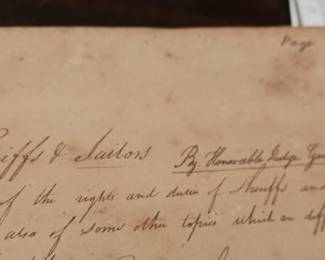 Page
riffs & Jailors By Honorable Judge
of the rights and duties of Sheriffs and
also of some other topics which an diff